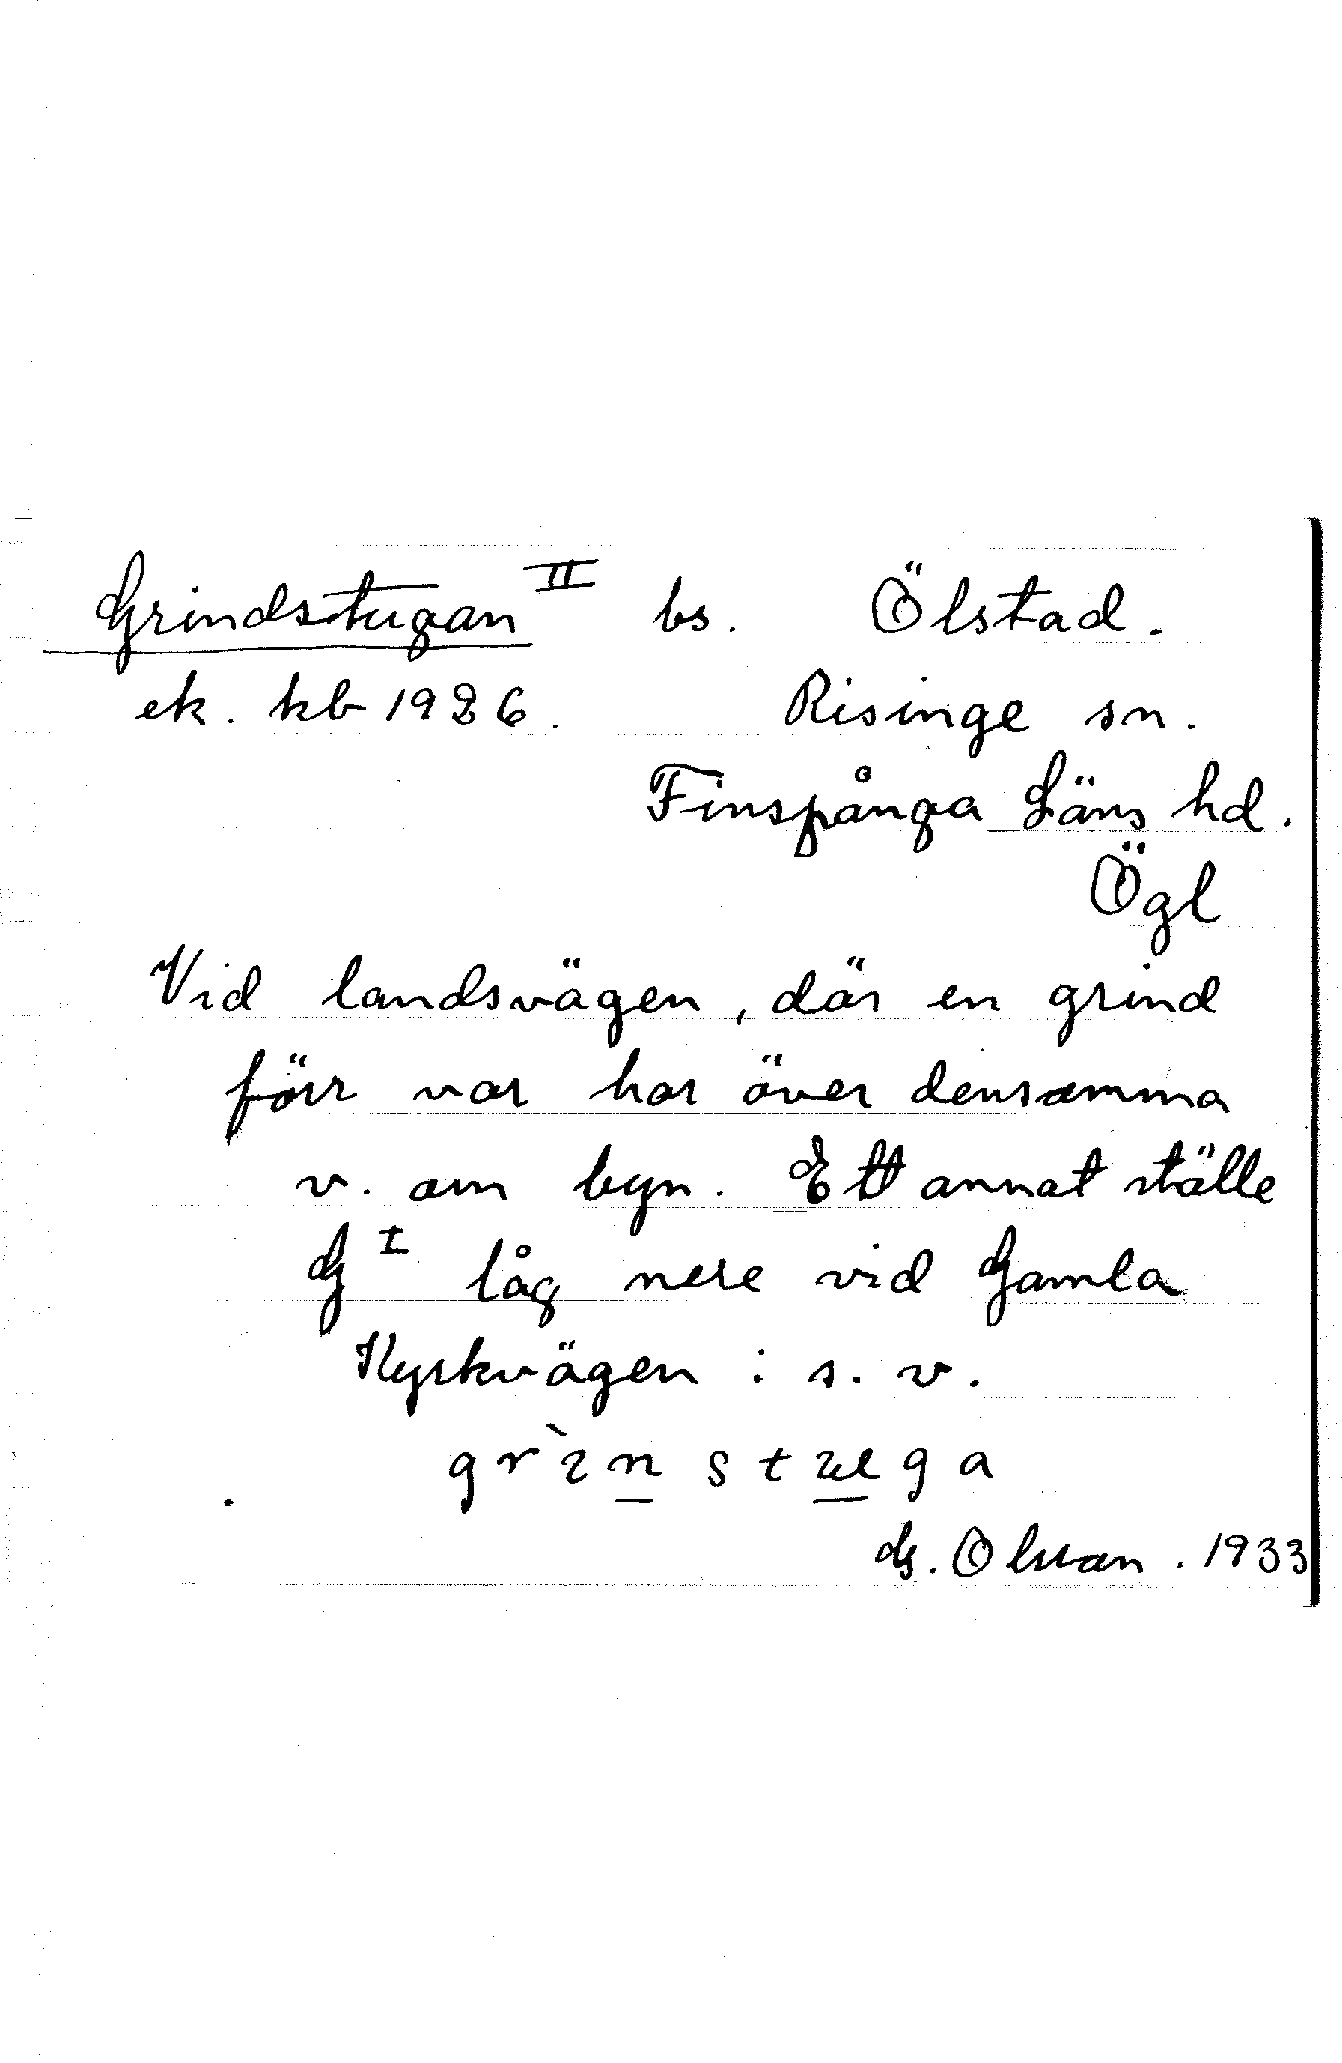 Grindstugan II bs. Ölstad.
ek. kb 1926. Risinge sn.
Finspånga Läns hd.
Ögl
Vid landsvägen, där en grind
förr var har över densamma
v. om byn. Ett annat ställe
G I låg nere vid Gamla
Kyrkvägen : s. v.
grìn stuga
G. Olsson. 1933